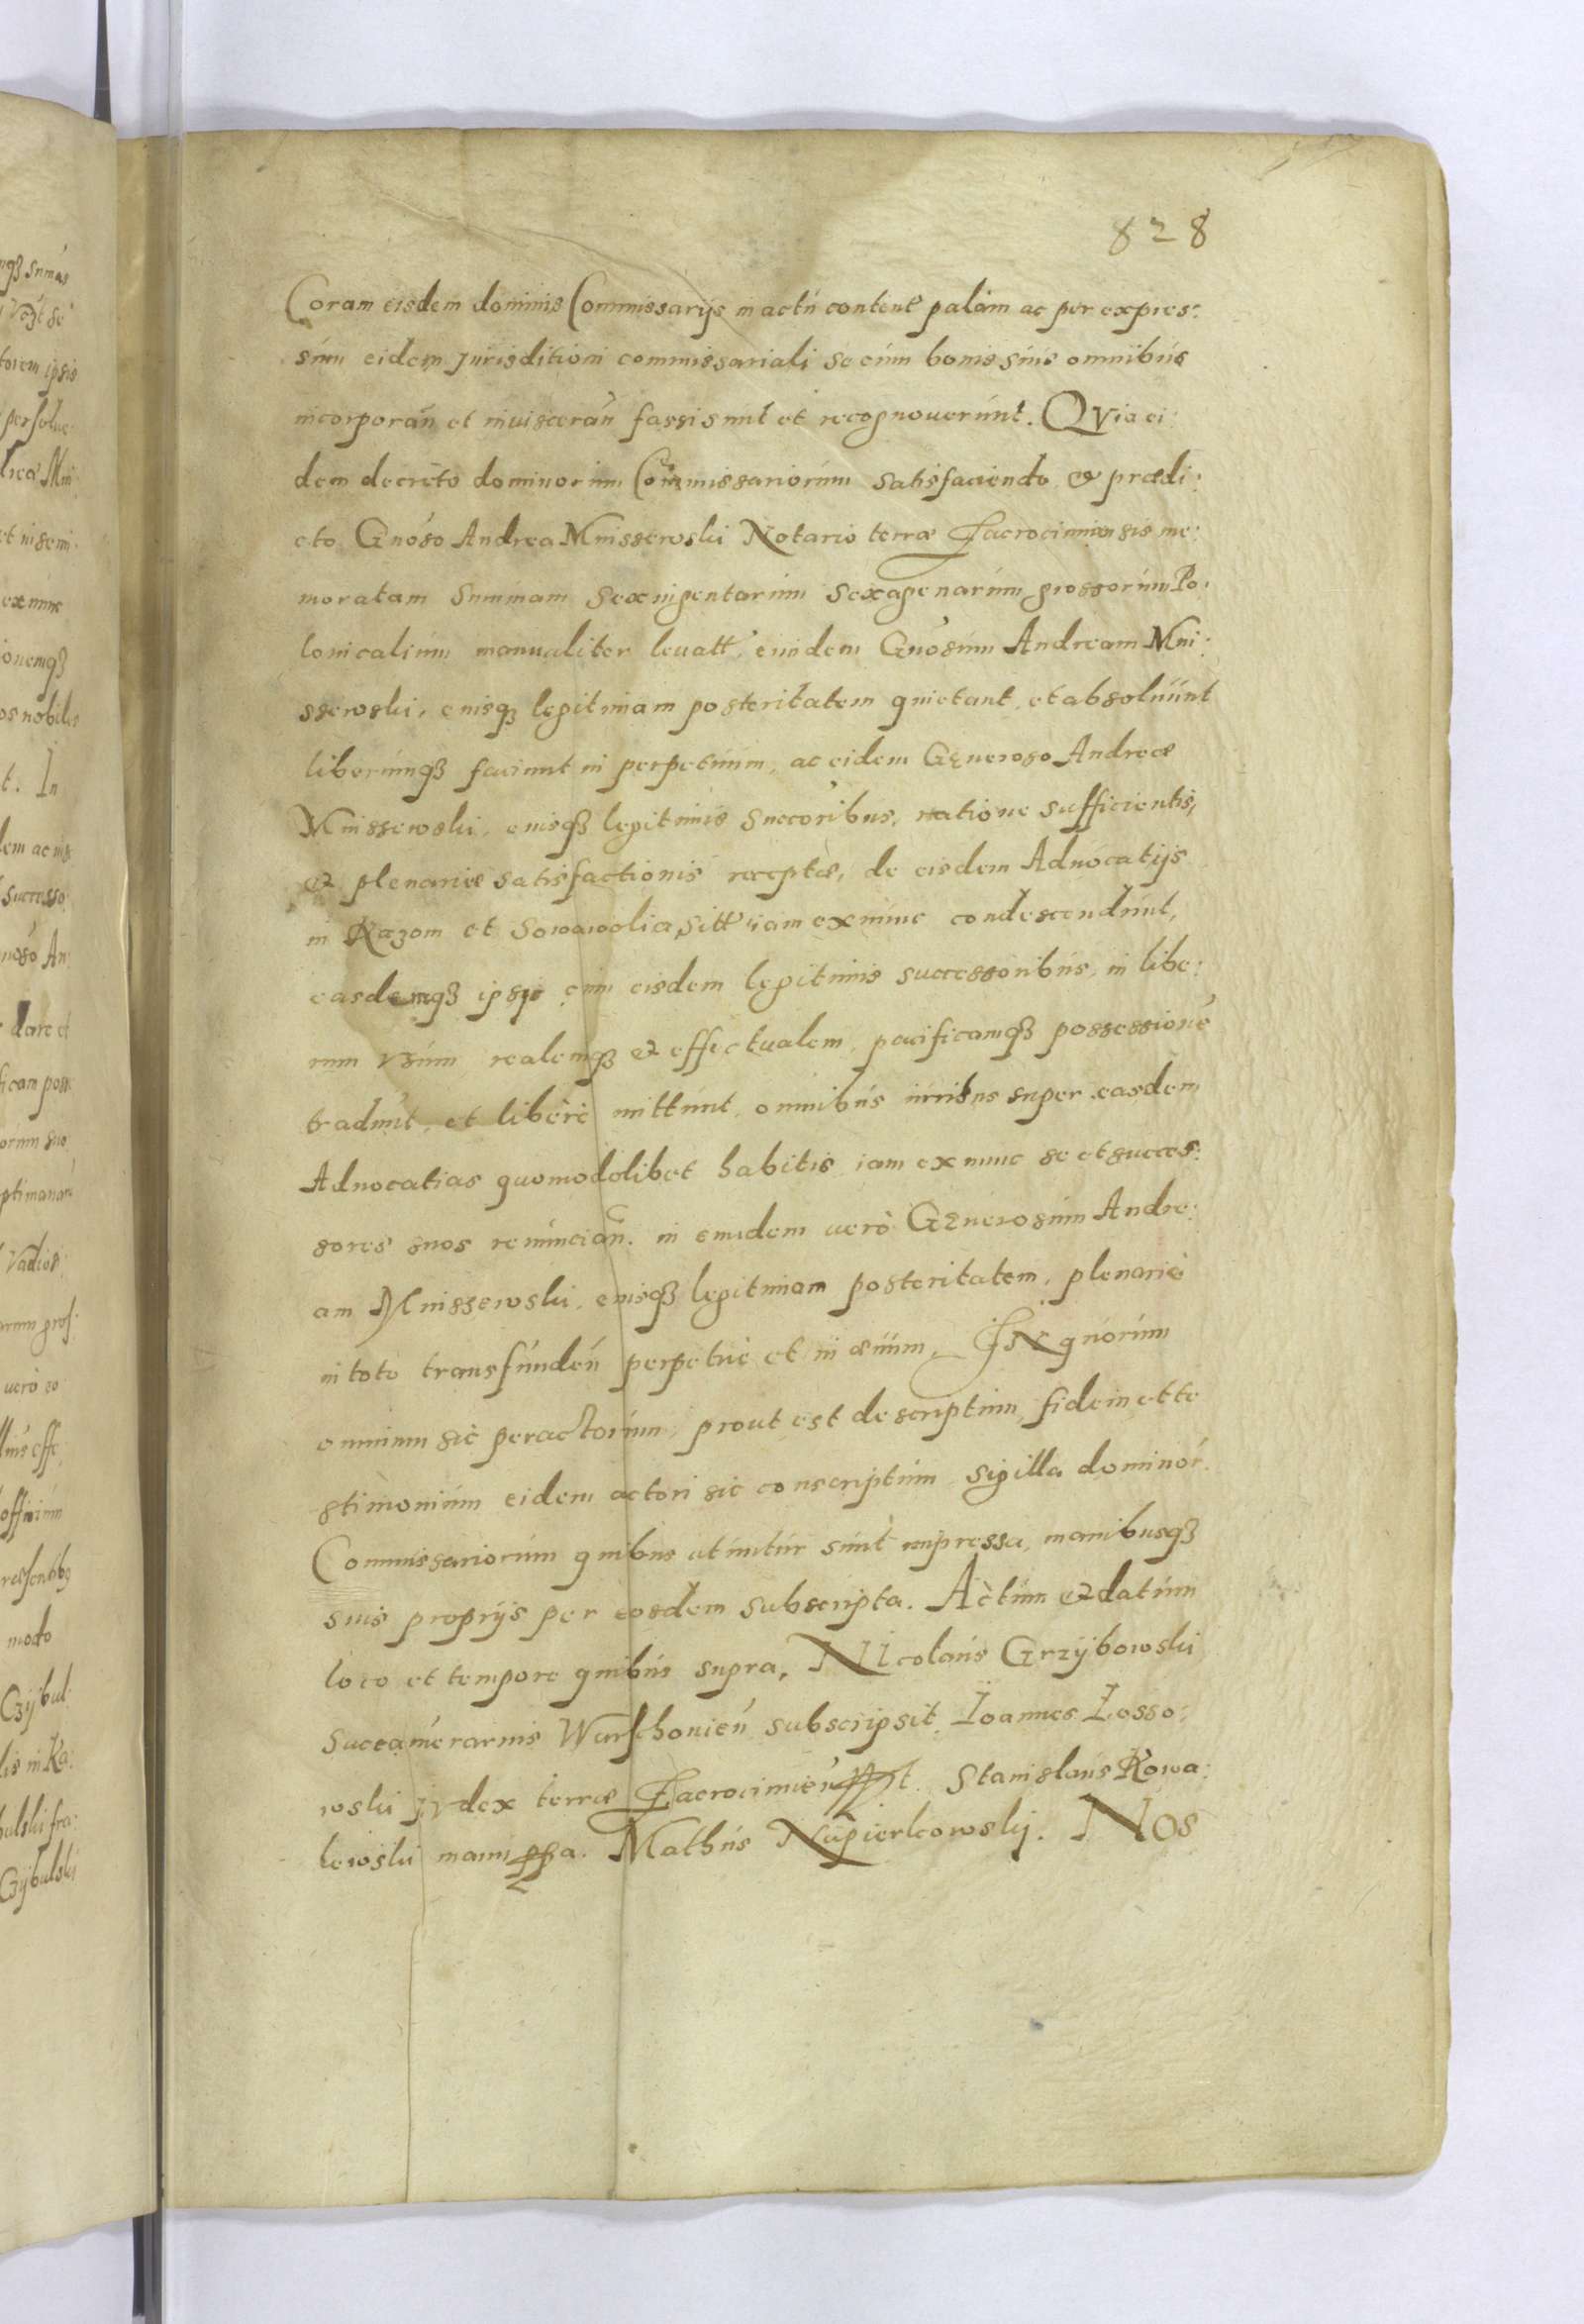 828
Coram eisdem dominis Commissarijs in actu content palám ac per expres:
sum eidem Jurisditioni commissariali se cum bonis suis omnibus
incorporan̄ et inuisceran̄ fassi sunt et recognouerunt. QVia ei:
dem decreto dominorum Commissariorum satisfaciendo & prædi:
cto Gnoso Andrea Mnissewski Notario terræ Zacrocimiensis me:
moratam Summam Sexingentarum Sexagenarum grossorum Po:
lonicalium manualiter leuatt, eundem Gnosum Andream Mni:
ssewski, eiusq3 legitimam posteritatem quietant, et absoluunt
liberumq3 faciunt in perpetuum, ac eidem Generoso Andreæ
Mnissewski, eiusq3 legitimis Succoribus, ratione sufficientis,
& plenariæ satisfactionis receptæ, de eisdem Aduocatijs
in Kazom et Sowawolia sitt iam ex nunc condescendunt,
easdemq3 ipsi cum eisdem legitimis successoribus, in libe:
rum vsum realemq3 & effectualem, pacificamq3 possessione
tradunt, et liberè mittunt, omnibus iuribus super easdem
Aduocatias quomodolibet habitis iam ex nunc se et succes:
sores suos renuncian̄. in eundem uerò Generosum Andre:
am Mnissewski, eiusq3 legitimam posteritatem, plenariè
in toto transfunden̄ perpetuè et in æuum. IN quorum
omnium sic peractorum, prout est descriptum, fidem et te
stimonium eidem actori sic conscriptum sigilla dominor
Commissariorum quibus utuntur sunt impressa, manibusq3
suis proprijs per eosdem subscripta. Actum & datum
loco et tempore quibus supra, NIcolaus Grzÿbowski
Succamerarius Warschouien̄ subscripsit. Ioannes Losso:
wski Jvdex terræ Zacrocimien̄ sst. Stanislaus Kowa:
lewski manu ppa. Mathus Napierkowskÿ. NOs